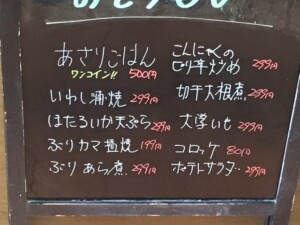 あさりごはん
ワンコイン!! 500円
いわし蒲焼 299円
ほたるいか天ぷら 299円
ぶりカマ塩焼 199円
ぶりあら煮 299円
こんにゃくの
ピリ辛炒め 299円
切干大根煮 299円
大学いも 299円
コロッケ 80円
ポテトサラダ 299円